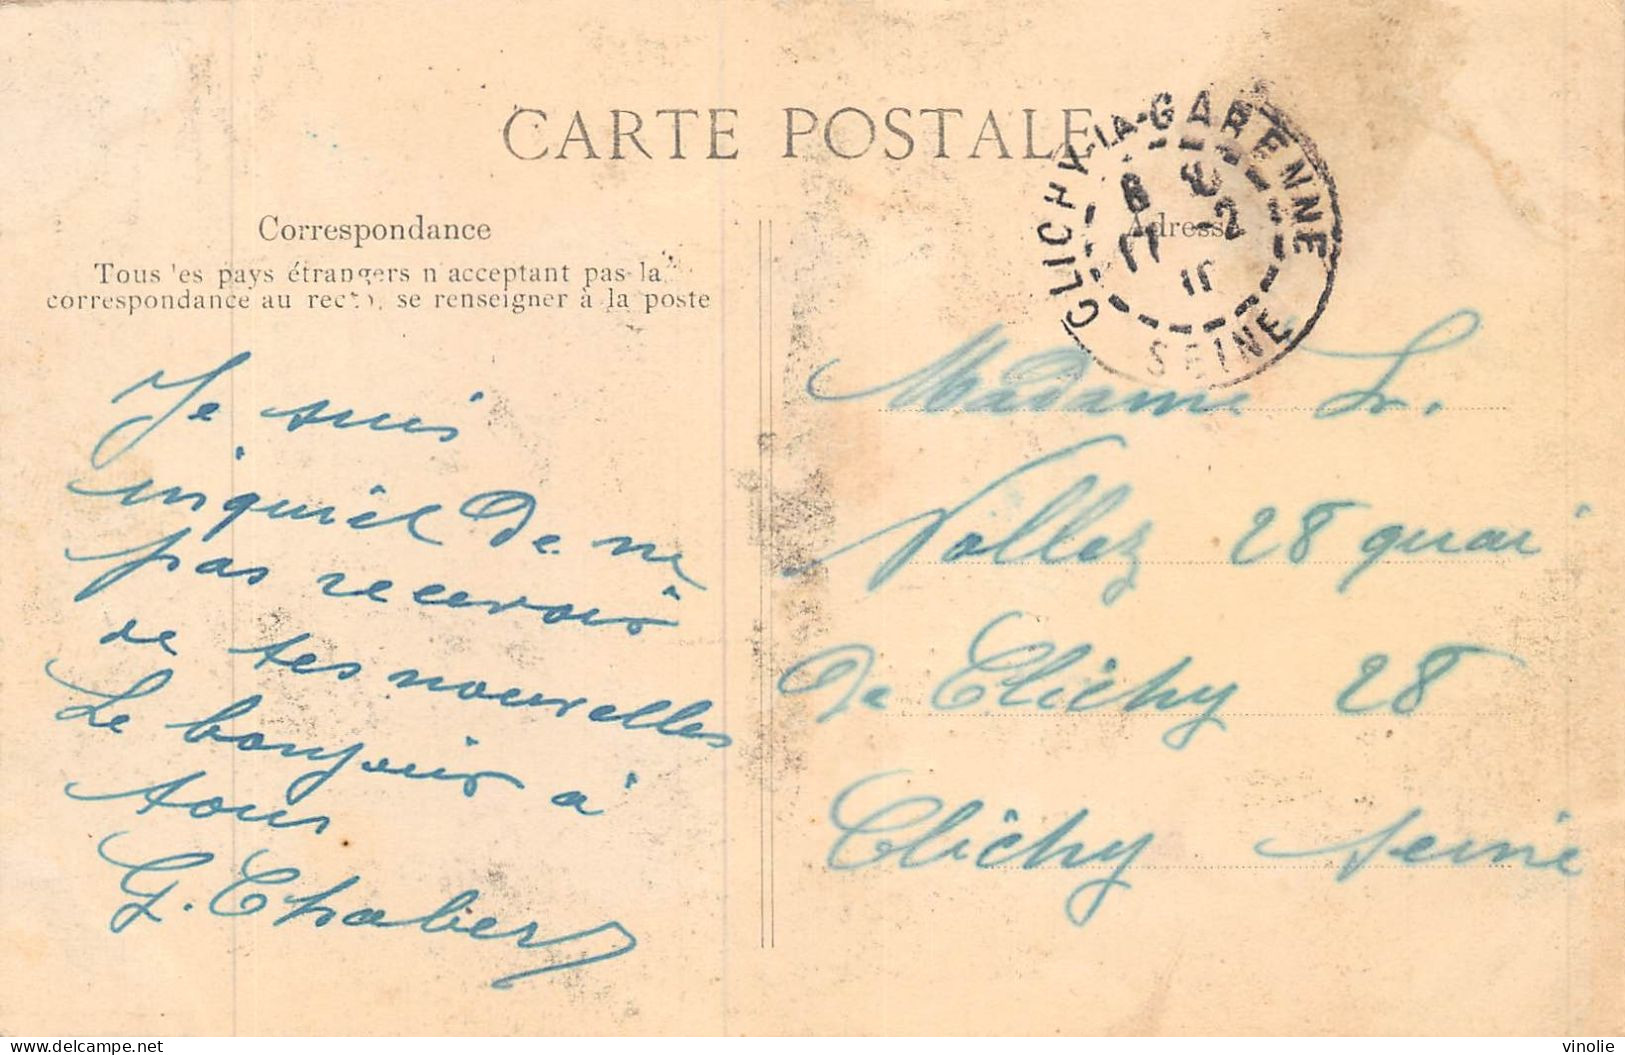 CARTE POSTALE
Correspondance
Tous les pays étrangers n'acceptant pas la
correspondance au recto, se renseigner à la poste
Je suis
inquiet de ne
pas recevoir
de tes nouvelles
Le bonjour à
tous
G. Chabert
Adresse
CLICHY-LA-GARENNE
17 -2
SEINE
Madame
Vallez 28 quai
De Clichy 28
Clichy Seine
delcampe.net
vinolie